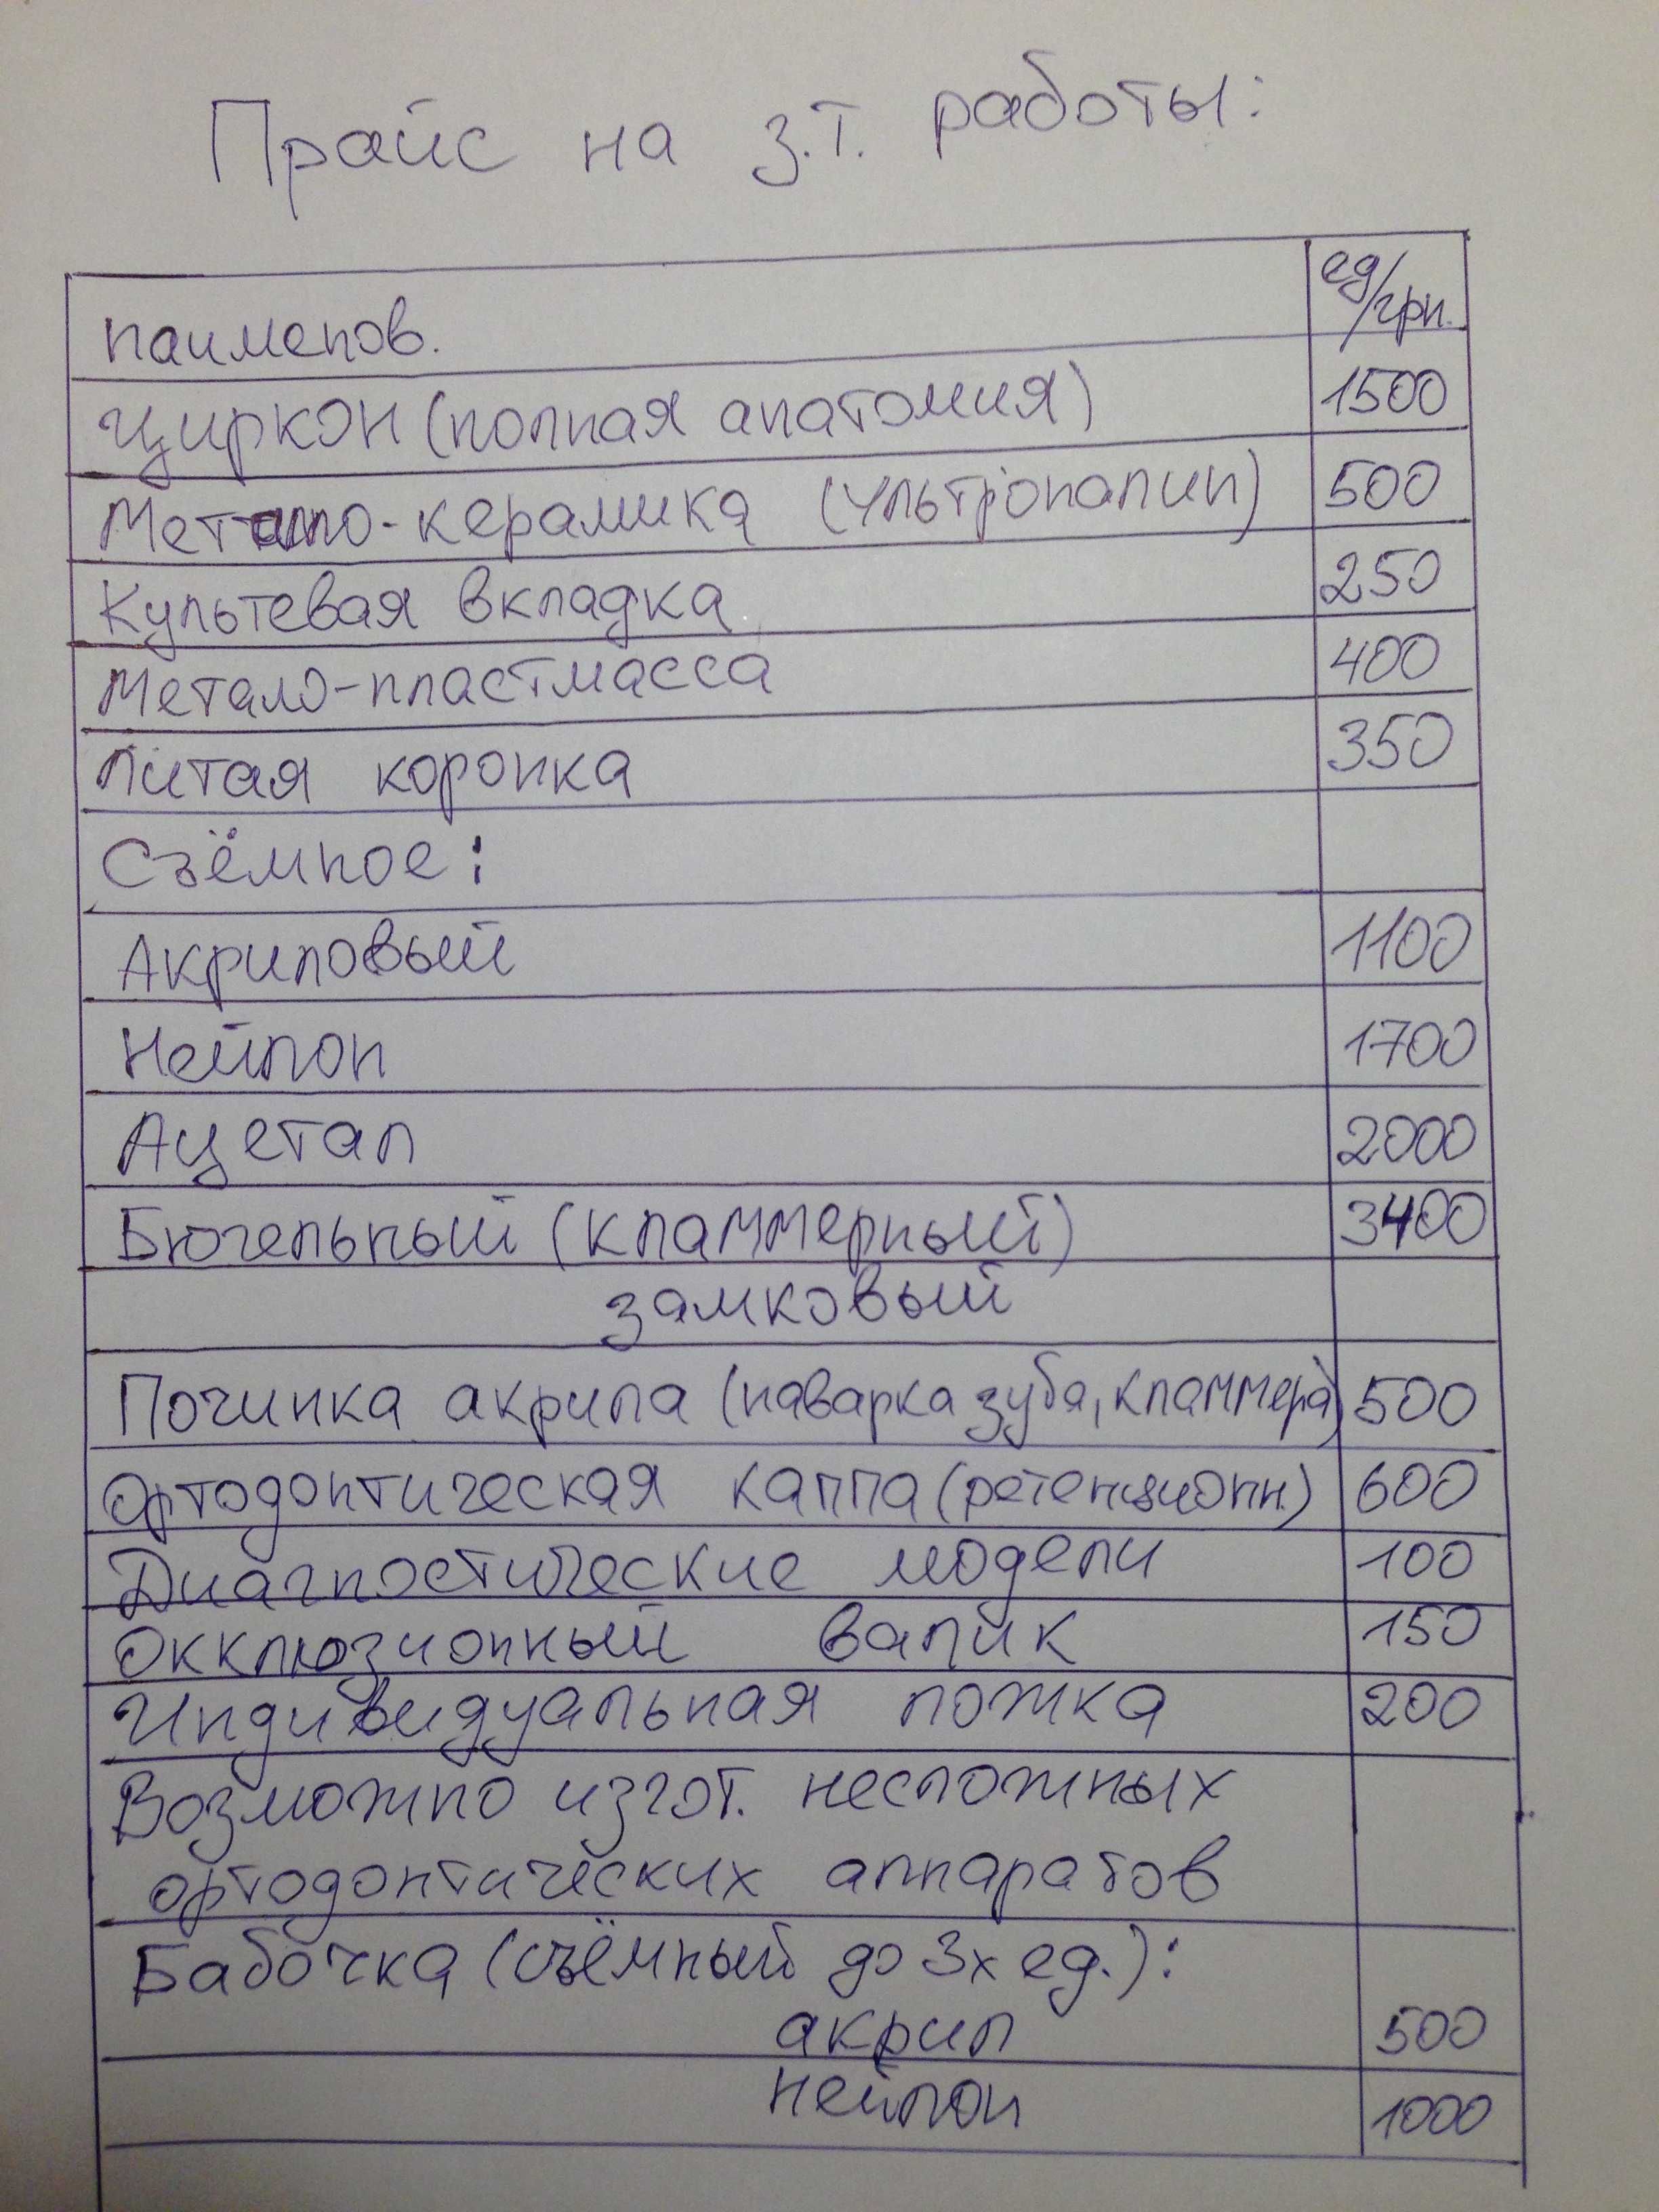 Прайс на з.т. работы:
наименов. ед/грн.
Циркон (полная анатомия) 1500
Метало-керамика (ультропалин) 500
Культевая вкладка 250
Метало-пластмасса 400
Литая коронка 350
Съёмное:
Акриловый 1100
Нейлон 1700
Ацетал 2000
Бюгельный (кламмерный) 3400
замковый
Починка акрила (наварка зуба, кламмера) 500
Ортодонтическая каппа (ретенционн.) 600
Диагностические модели 100
Окклюзионный валик 150
Индивидуальная ложка 200
Возможно изгот. несложных
ортодонтических аппаратов
Бабочка (съёмный до 3х ед.):
акрил 500
нейлон 1000